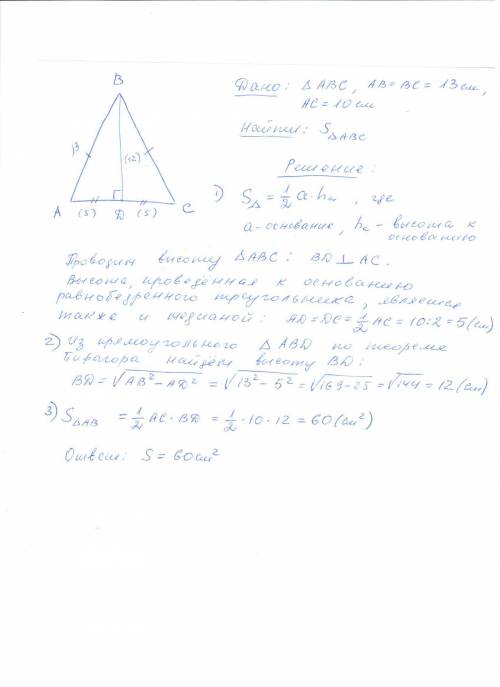 B
Дано: ΔABC, AB=BC=13см,
AC=10см
Найти: SΔABC
Решение:
13
(12)
A
(5)
D
(5)
C
1) SΔ = 1/2 a·hₐ, где
a-основание, hₐ - высота к
основанию
Проводим высоту ΔABC: BD⊥AC.
Высота, проведённая к основанию
равнобедренного треугольника, является
также и медианой: AD=DC=1/2 AC=10:2=5(см)
2) Из прямоугольного ΔABD по теореме
Пифагора найдём высоту BD:
BD=√AB²-AD² = √13²-5² = √169-25 = √144 = 12(см)
3) SΔAB = 1/2 AC·BD = 1/2·10·12=60(см²)
Ответ: S=60см²